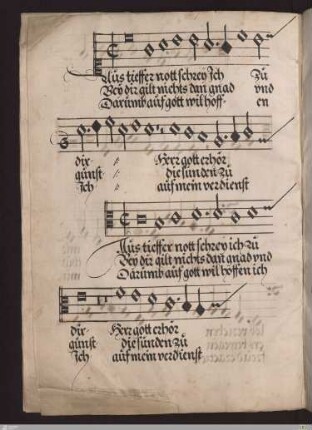 Aus tieffer nott schrey Ich Zu
Bey dir gilt nichts dan gnad vnd
Darumb auf gott wil hoff- en
dir Herr gott erhör
gunst die sunden zu
Ich auf mein verdienst
Aus tieffer nott schrey ich zu
Bey dir gilt nichts dan gnad vnd
Darumb auf gott wil hoffen ich
dir Herr gott erhör
gunst die sunden zu
Ich auf mein verdienst